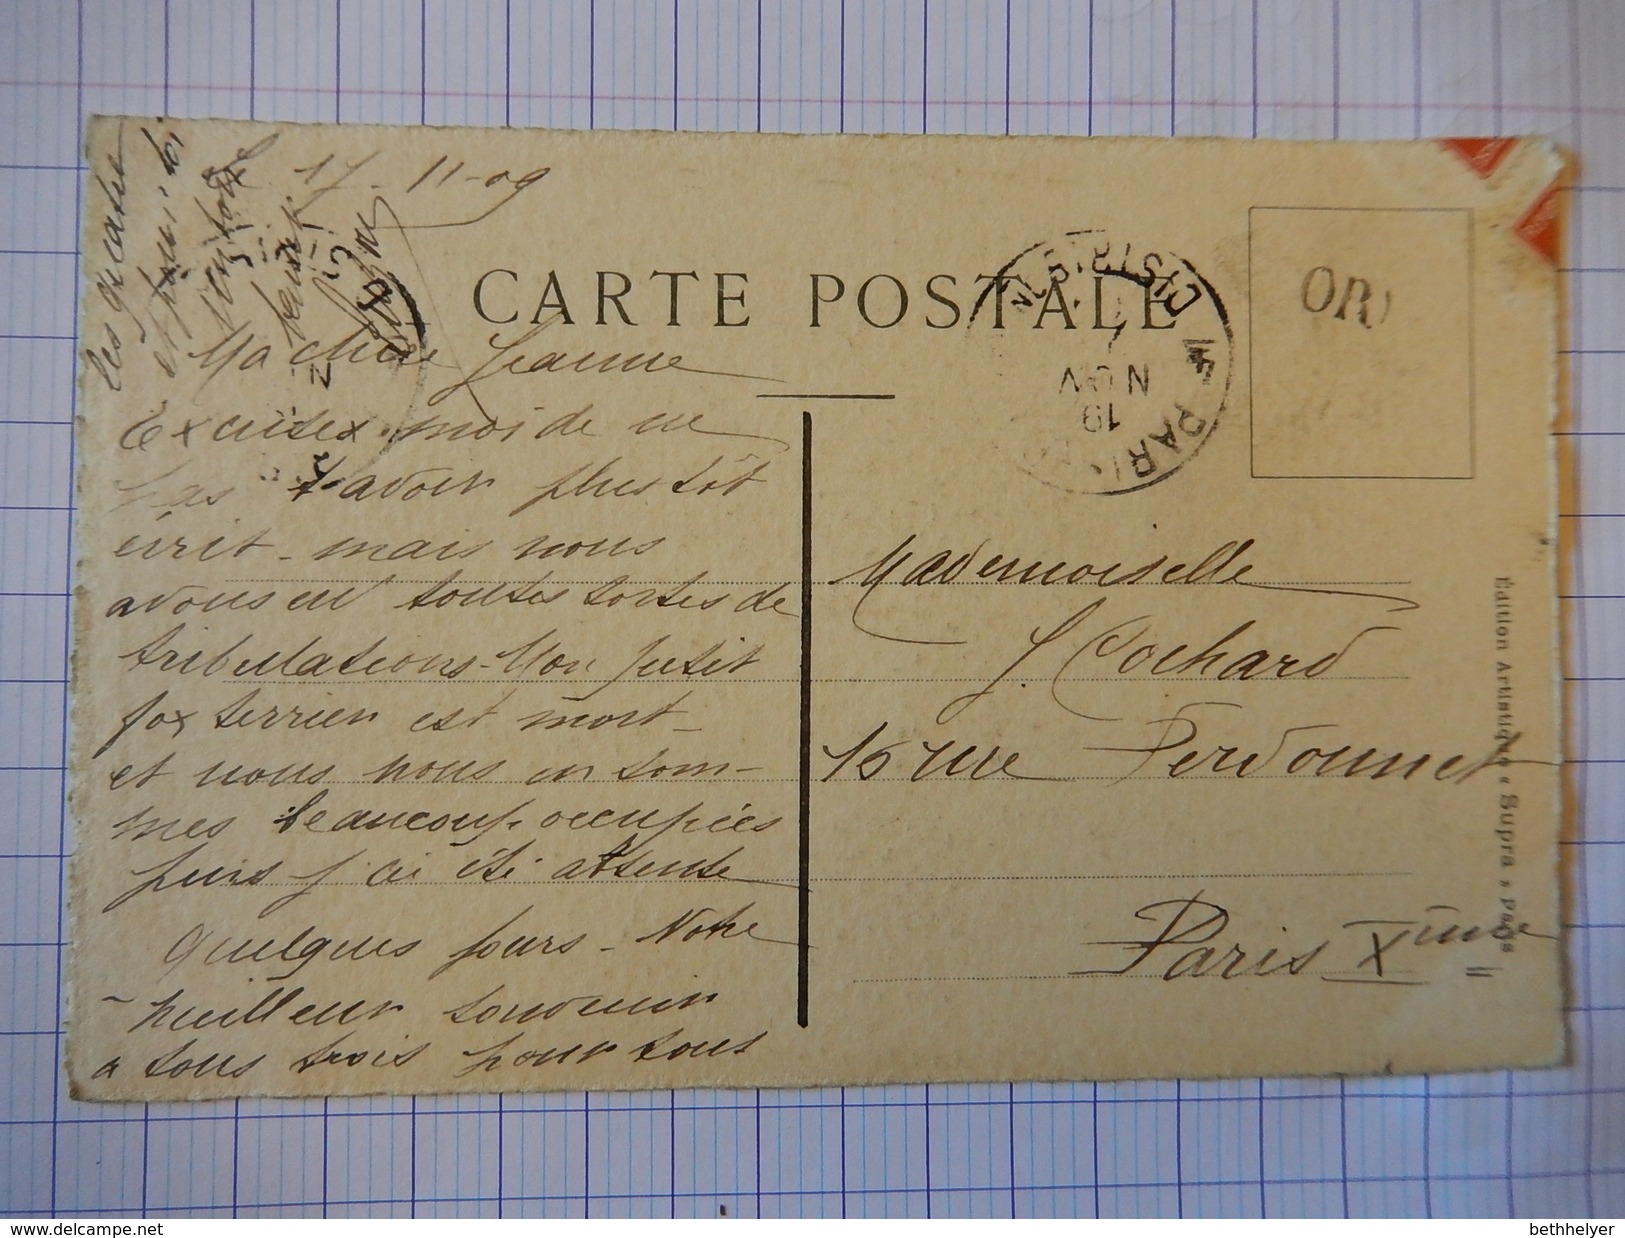 17-11-09
CARTE POSTALE
Ma chère Jeanne
Excusez moi de ne
pas t'avoir plus tôt
écrit - mais nous
avons eu toutes sortes de
tribulations - Mon petit
fox terrier est mort -
et nous nous en som-
mes beaucoup occupées
puis j'ai été absente
quelques jours - Notre
meilleur souvenir
a tous trois pour tous
les quatre
et pour toi
bons
baisers
Mademoiselle
J. Cochard
16 rue Perdonnet
Paris Xème
PARIS
DISTRIBUTION
19
NOV
OR
Édition Artistique « Supra » Paris
bethhelyer